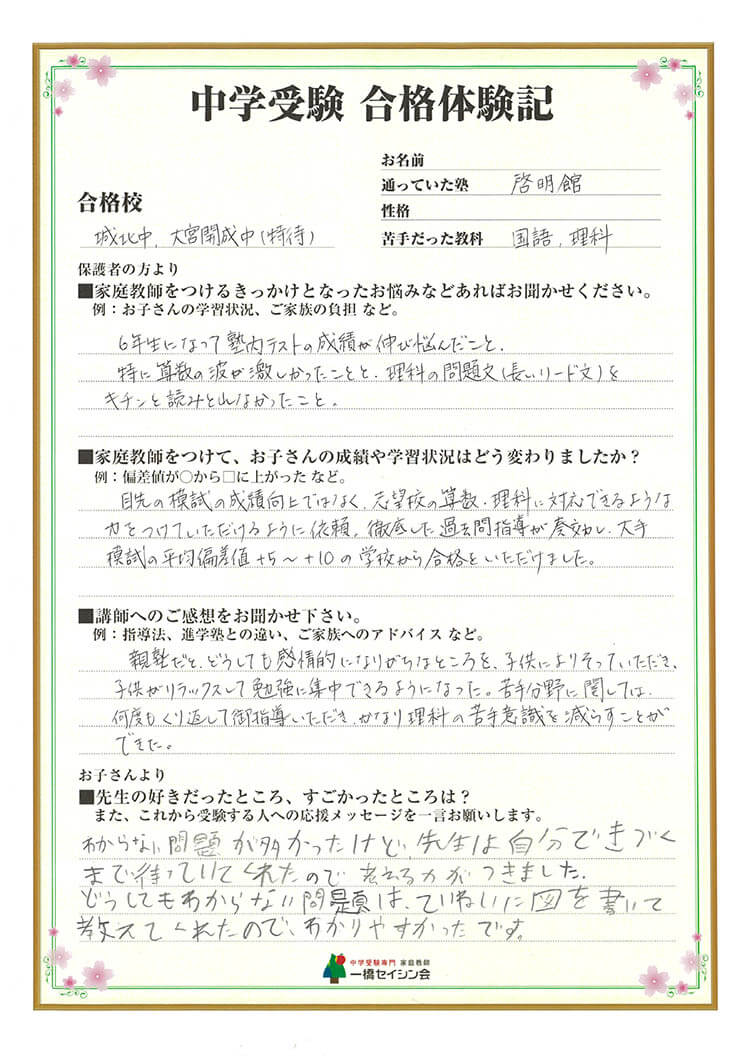 中学受験 合格体験記
お名前
通っていた塾 啓明館
合格校
性格
城北中、大宮開成中(特待)
苦手だった教科 国語、理科
保護者の方より
■家庭教師をつけるきっかけとなったお悩みなどあればお聞かせください。
例：お子さんの学習状況、ご家族の負担 など。
6年生になって塾内テストの成績が伸び悩んだこと。
特に算数の波が激しかったことと、理科の問題文(長いリード文)を
キチンと読みとれなかったこと。
■家庭教師をつけて、お子さんの成績や学習状況はどう変わりましたか？
例：偏差値が○から□に上がった など。
目先の模試の成績向上ではなく、志望校の算数・理科に対応できるような
力をつけていただけるように依頼。徹底した過去問指導が奏効し、大手
模試の平均偏差値+5～+10の学校から合格をいただけました。
■講師へのご感想をお聞かせ下さい。
例：指導法、進学塾との違い、ご家族へのアドバイス など。
親だと、どうしても感情的になりがちなところを、子供によりそっていただき、
子供がリラックスして勉強に集中できるようになった。苦手分野に関しては、
何度もくり返して御指導いただき、かなり理科の苦手意識を減らすことが
できた。
お子さんより
■先生の好きだったところ、すごかったところは？
また、これから受験する人への応援メッセージを一言お願いします。
わからない問題が多かったけど、先生は自分できづく
まで待っていてくれたので考える力がつきました。
どうしてもわからない問題は、ていねいに図を書いて
教えてくれたので、わかりやすかったです。
中学受験専門 家庭教師
一橋セイシン会